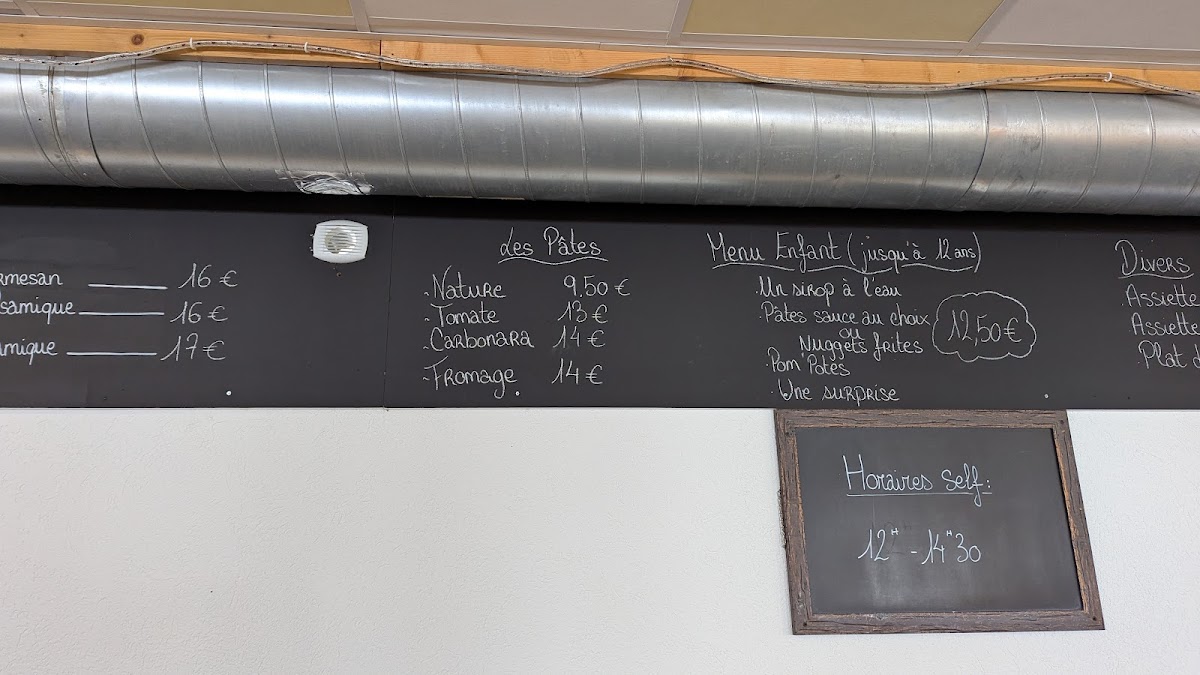 rmesan 16 €
samique 16 €
amique 17 €
Les Pâtes
. Nature 9.50 €
. Tomate 13 €
. Carbonara 14 €
. Fromage 14 €
Menu Enfant (jusqu'à 12 ans)
. Un sirop à l'eau
. Pâtes sauce au choix
ou
Nuggets frites
. Pom'Potes
. Une surprise
12,50 €
Divers
. Assiette
. Assiette
. Plat d
Horaires Self :
12H - 14H30